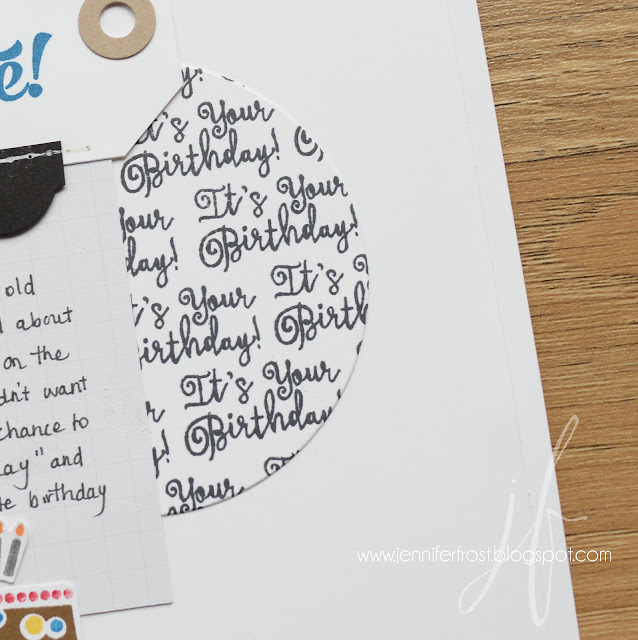 e!
y!
It's Your
Birthday!
Your It's Your
day! Birthday!
It's Your It's Y
irthday! Birth
It's Your
y! Birthday!
Your It's
old
about
on the
dn't want
chance to
ay" and
te birthday
jf
www.jenniferfrost.blogspot.com